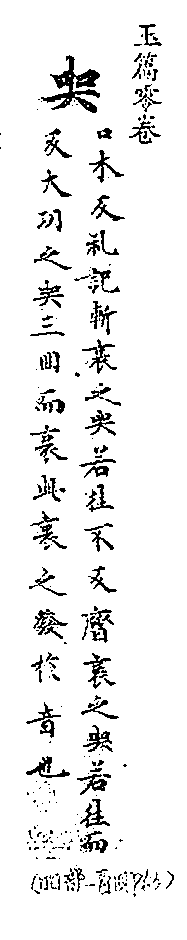 玉篇零卷
哭
口木反礼記斬衰之哭若往不反齊衰之哭若往而
反大功之哭三曲而衰此衰之發於音也